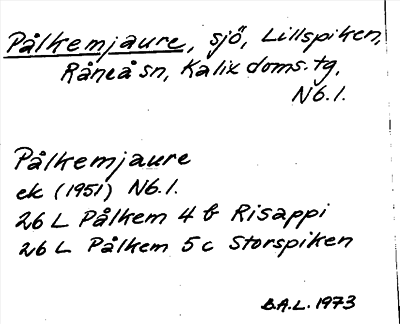 Pålkemjaure, sjö, Lillspiken,
Råneå sn, Kalix doms.tg,
Nb.l.
Pålkemjaure
ek (1951) Nb.l.
26 L Pålkem 4 b Risappi
26 L Pålkem 5 c Storspiken
B.A.L. 1973